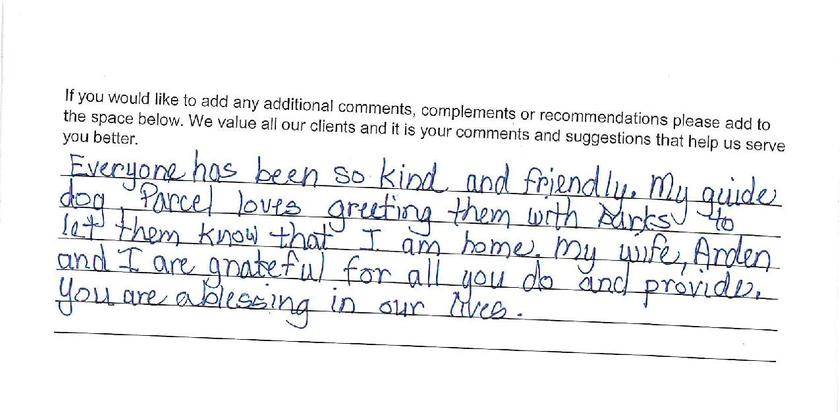 If you would like to add any additional comments, complements or recommendations please add to
the space below. We value all our clients and it is your comments and suggestions that help us serve
you better.
Everyone has been so kind and friendly. My guide
dog, Parcel loves greeting them with barks to
let them know that I am home. My wife, Arden
and I are grateful for all you do and provide.
You are a blessing in our lives.